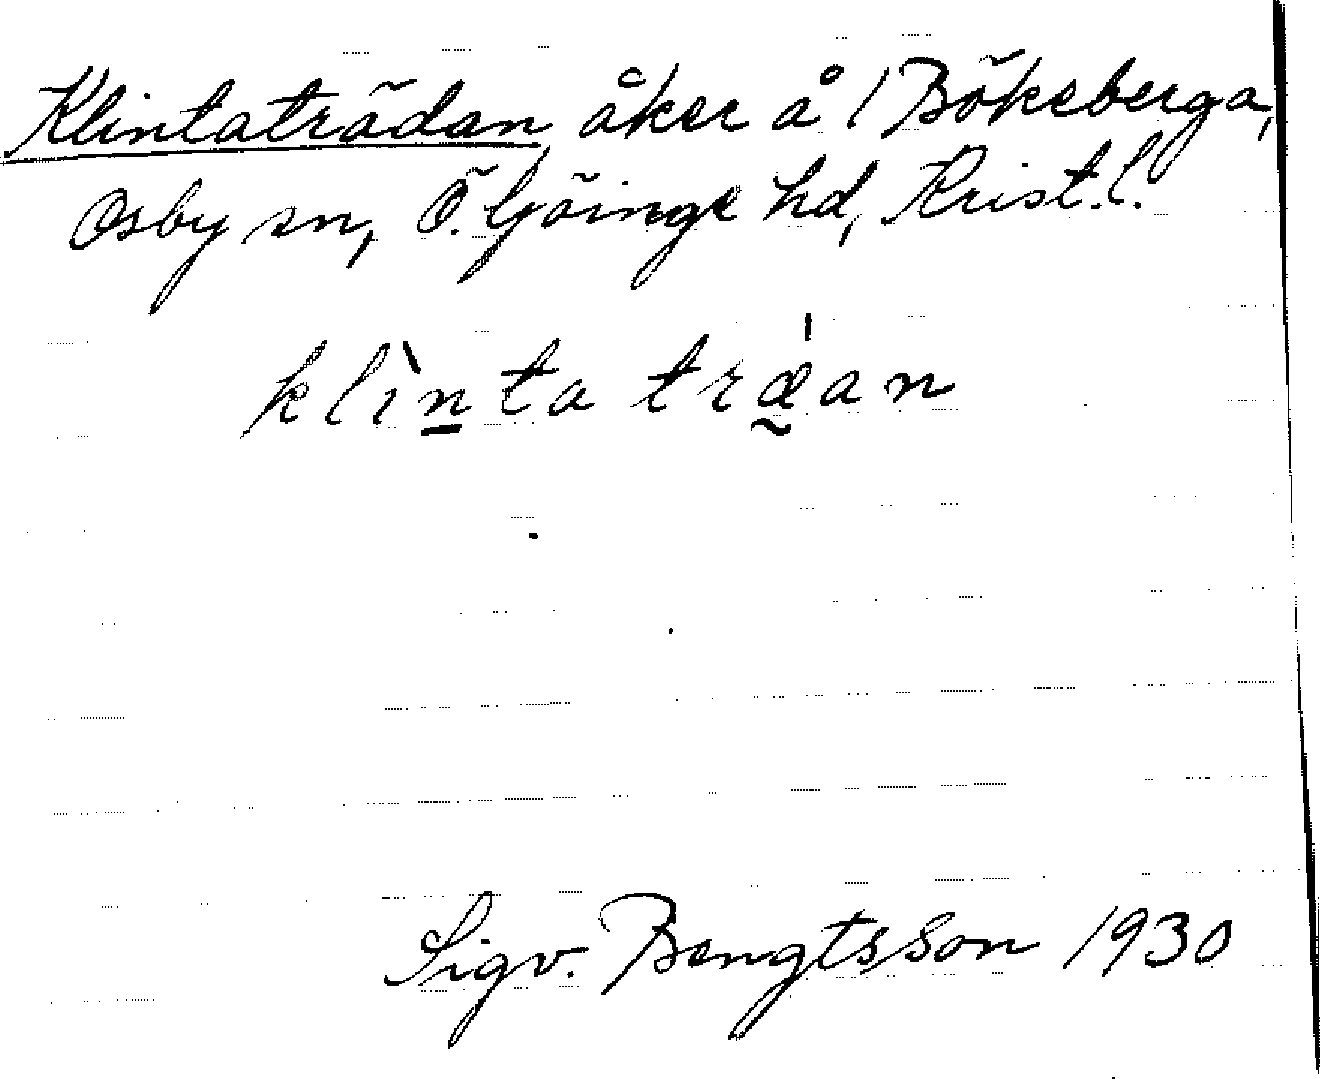 Klintaträdan åker å 1 Bökeberga,
Osby sn, Ö. Göinge hd, Krist. l.
klìnta trǽan
Sigv. Bengtsson 1930